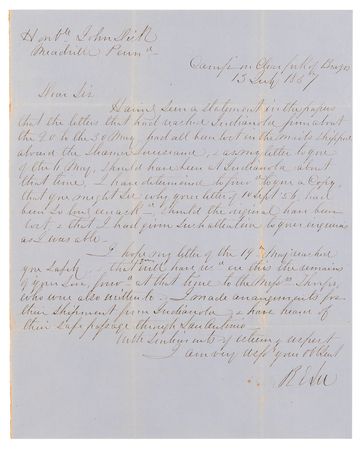 Honble John Dick
Meadville Penna
Camp on Clear fork of Brazos
13 July 1857
Dear Sir
Having seen a statement in the papers
that the letters that had reached Indianola from about
the 20 to the 30 May, had all been lost in the mails shipped
aboard the Steamer Louisiana, & as my letter to you
of the May, should have been at Indianola about
that time, I have determined to you a Copy,
that you might see why your letter of 14 Sept 56, had
been so long, should the original have been
lost, & that I had given such attention to your inquiries
as I was able.
I hope my letter of the 19 May reached
you safely, & that will have in this the remains
of your Son, at that time to the Messrs
who were also written to, & I made arrangements for
their shipment from Indianola, & have heard of
their safe passage through San Antonio
With sentiments of esteem & respect
I am very respy your obt Servt
R E Lee